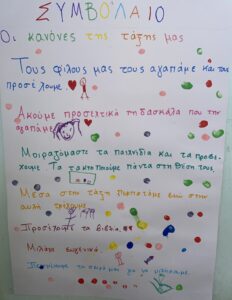 ΣΥΜΒΟΛΑΙΟ
Οι κανόνες της τάξης μας
Τους φίλους μας τους αγαπάμε και τους
προσέχουμε.
Ακούμε προσεκτικά τη δασκάλα που την
αγαπάμε
Μοιραζόμαστε τα παιχνίδια και τα προσέ-
χουμε. Τα τακτοποιούμε πάντα στη θέση τους
Μέσα στην τάξη περπατάμε ενώ στην
αυλή τρέχουμε
Προσέχουμε τα βιβλία
Μιλάμε ευγενικά
το χέρι μας για να μιλήσουμε.